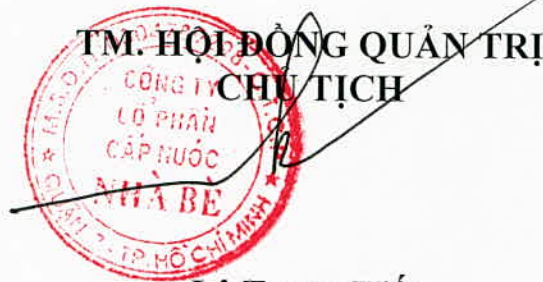 TM. HỘI ĐỒNG QUẢN TRỊ
CHỦ TỊCH
CÔNG TY
CỔ PHẦN
CẤP NƯỚC
NHÀ BÈ
QUẬN 7 - TP. HỒ CHÍ MINH